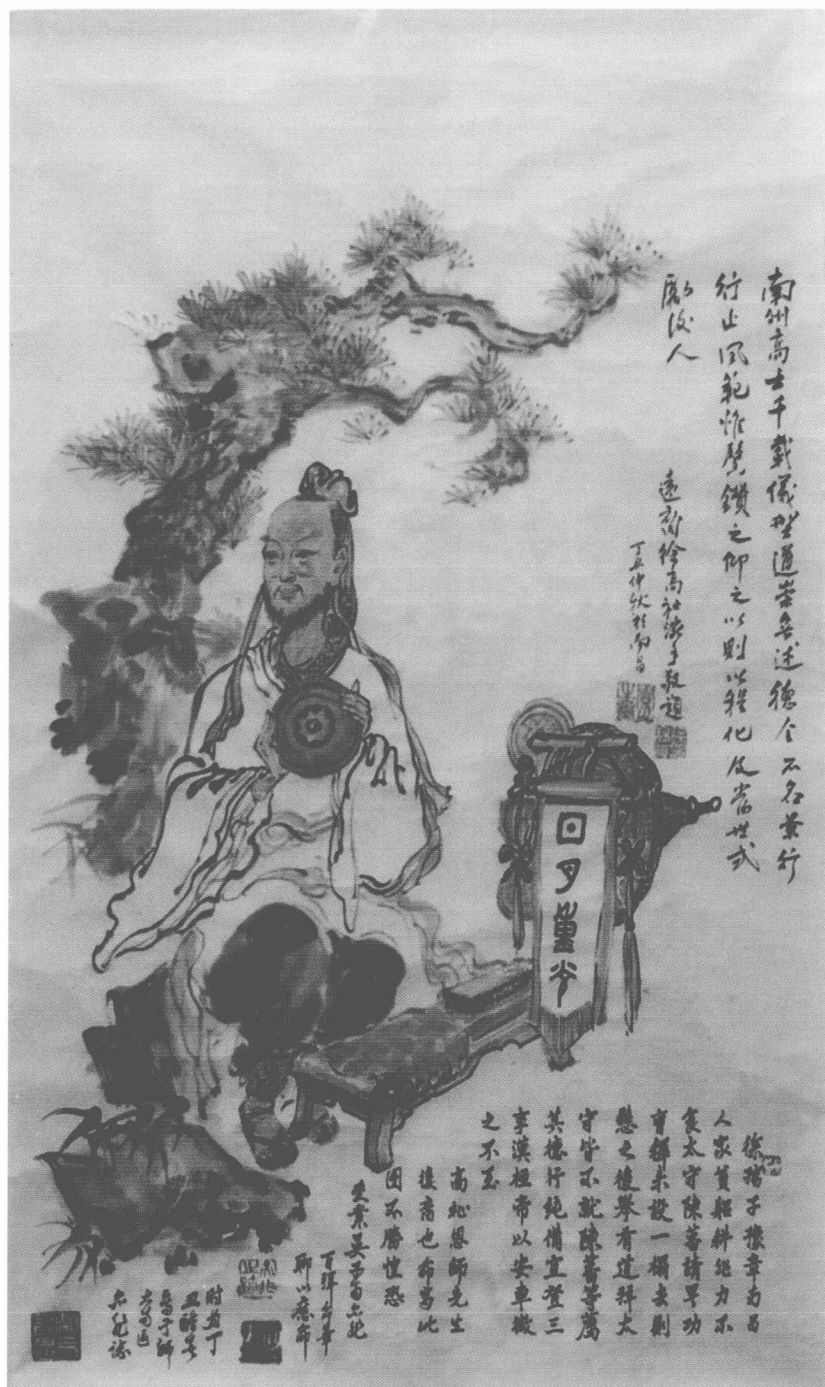 南州高士千載儀型道崇無述德全不名業行
行止風範惟賢鑽之仰之以則以程化及當世式
勵後人
遠裔徐高祉漱手敬題
丁丑仲秋於南昌
日月重光
徐孺子豫章南昌
人家貧躬耕非力不
食太守陳蕃請署功
曹穉來設一榻去則
懸之後舉有道拜太
守皆不就陳蕃等薦
其德行純備宜登三
事漢桓帝以安車徵
之不至
高祉恩師先生
後裔也命寫此
圖不勝惶恐
受業吴子南
聊以應命
時為丁
丑酷暑